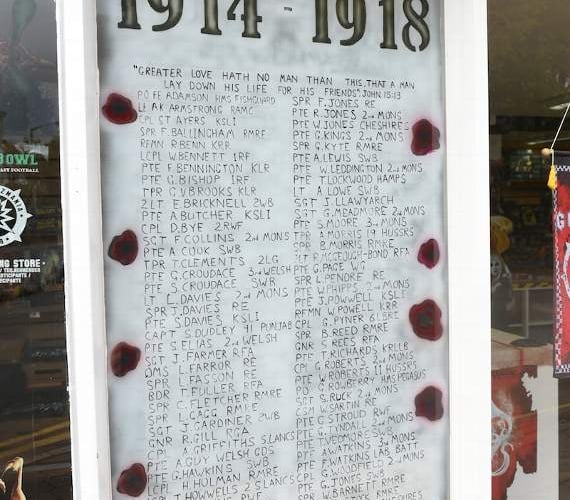 1914 - 1918
"GREATER LOVE HATH NO MAN THAN THIS, THAT A MAN
LAY DOWN HIS LIFE FOR HIS FRIENDS" JOHN 15:13
PO FF ADAMSON HMS FISHGUARD
LT AK ARMSTRONG RAMC
CPL ST AYERS KSLI
SPR F. BALLINGHAM RMRE
RFMN R. BENN KRR
LCPL W. BENNETT IRF
PTE F. BENNINGTON KLR
PTE G. BISHOP IRF
TPR G.V. BROOKS KLR
2LT E BRICKNELL 2WB
PTE A BUTCHER KSLI
CPL D. BYE 2RWF
SGT F COLLINS 2nd MONS
PTE A COOK SWB
TPR CLEMENTS 2LG
PTE G. CROUDACE 3rd WELSH
PTE S. CROUDACE SWB
LT L. DAVIES 2nd MONS
SPR J DAVIES RE
PTE S DAVIES KSLI
CAPT S DUDLEY 11 PUNJAB
PTE S ELIAS 2nd WELSH
SGT J. FARMER RFA
QMS L FARROR RE
SPR L FASSON RE
BDR T. FULLER RFA
SPR C. FLETCHER RMRE
SPR L GAGG RMRE
SGT J GARDINER 2WB
GNR R. GILL RFA
CPL A GRIFFITHS S.LANCS
PTE A. GUY WELSH GDS
PTE G. HAWKINS SWB
PTE H HOLMAN RMRE
SPR T HOWWELLS 2nd S LANCS
RWF
SPR F. JONES RE
PTE R. JONES 2nd MONS
PTE W. JONES CHESHIRE
PTE G. KINGS 2nd MONS
SPR G. KYTE RMRE
PTE A. LEWIS SWB
PTE W. LEDDINGTON 2nd MONS
PTE T LOCKWOOD HAMPS
LT A LOWE SWB
SGT J. LLAWYARCH
SGT G. MEADMORE 2nd MONS
PTE S MOORE 3rd MONS
TPR A MORRIS 11 HUSSRS
SPR B. MORRIS RMRE
2LT R McGOUGH-BOND RFA
PTE G. PAGE WG
SPR L. PENDRE RE
PTE W. PHIPPS 2nd MONS
PTE J POWELL KSLI
RFMN W. POWELL KRR
CPL G. PYNER 6LBRE
SPR B. REED RMRE
GNR S REES RFA
PTE T RICHARDS KRLLB
CPL G ROBERTS 2nd MONS
PTE W ROBERTS 11 HUSSRS
PO G ROWBERRY HMS PEGASUS
SGT G. RUCK 2nd MONS
CSM W SARTIN RE
PTE G STROUD RWF
TYNDALL 2nd MONS
PTE T VEDMORE SWB
PTE A WATKINS 3rd MONS
PTE F. WATKINS LAB BATT
CPL G WOODFIELD 2nd MONS
PTE G. JONES SWB
SPR W. BARNETT RMRE
BOWL
FANTASY FOOTBALL